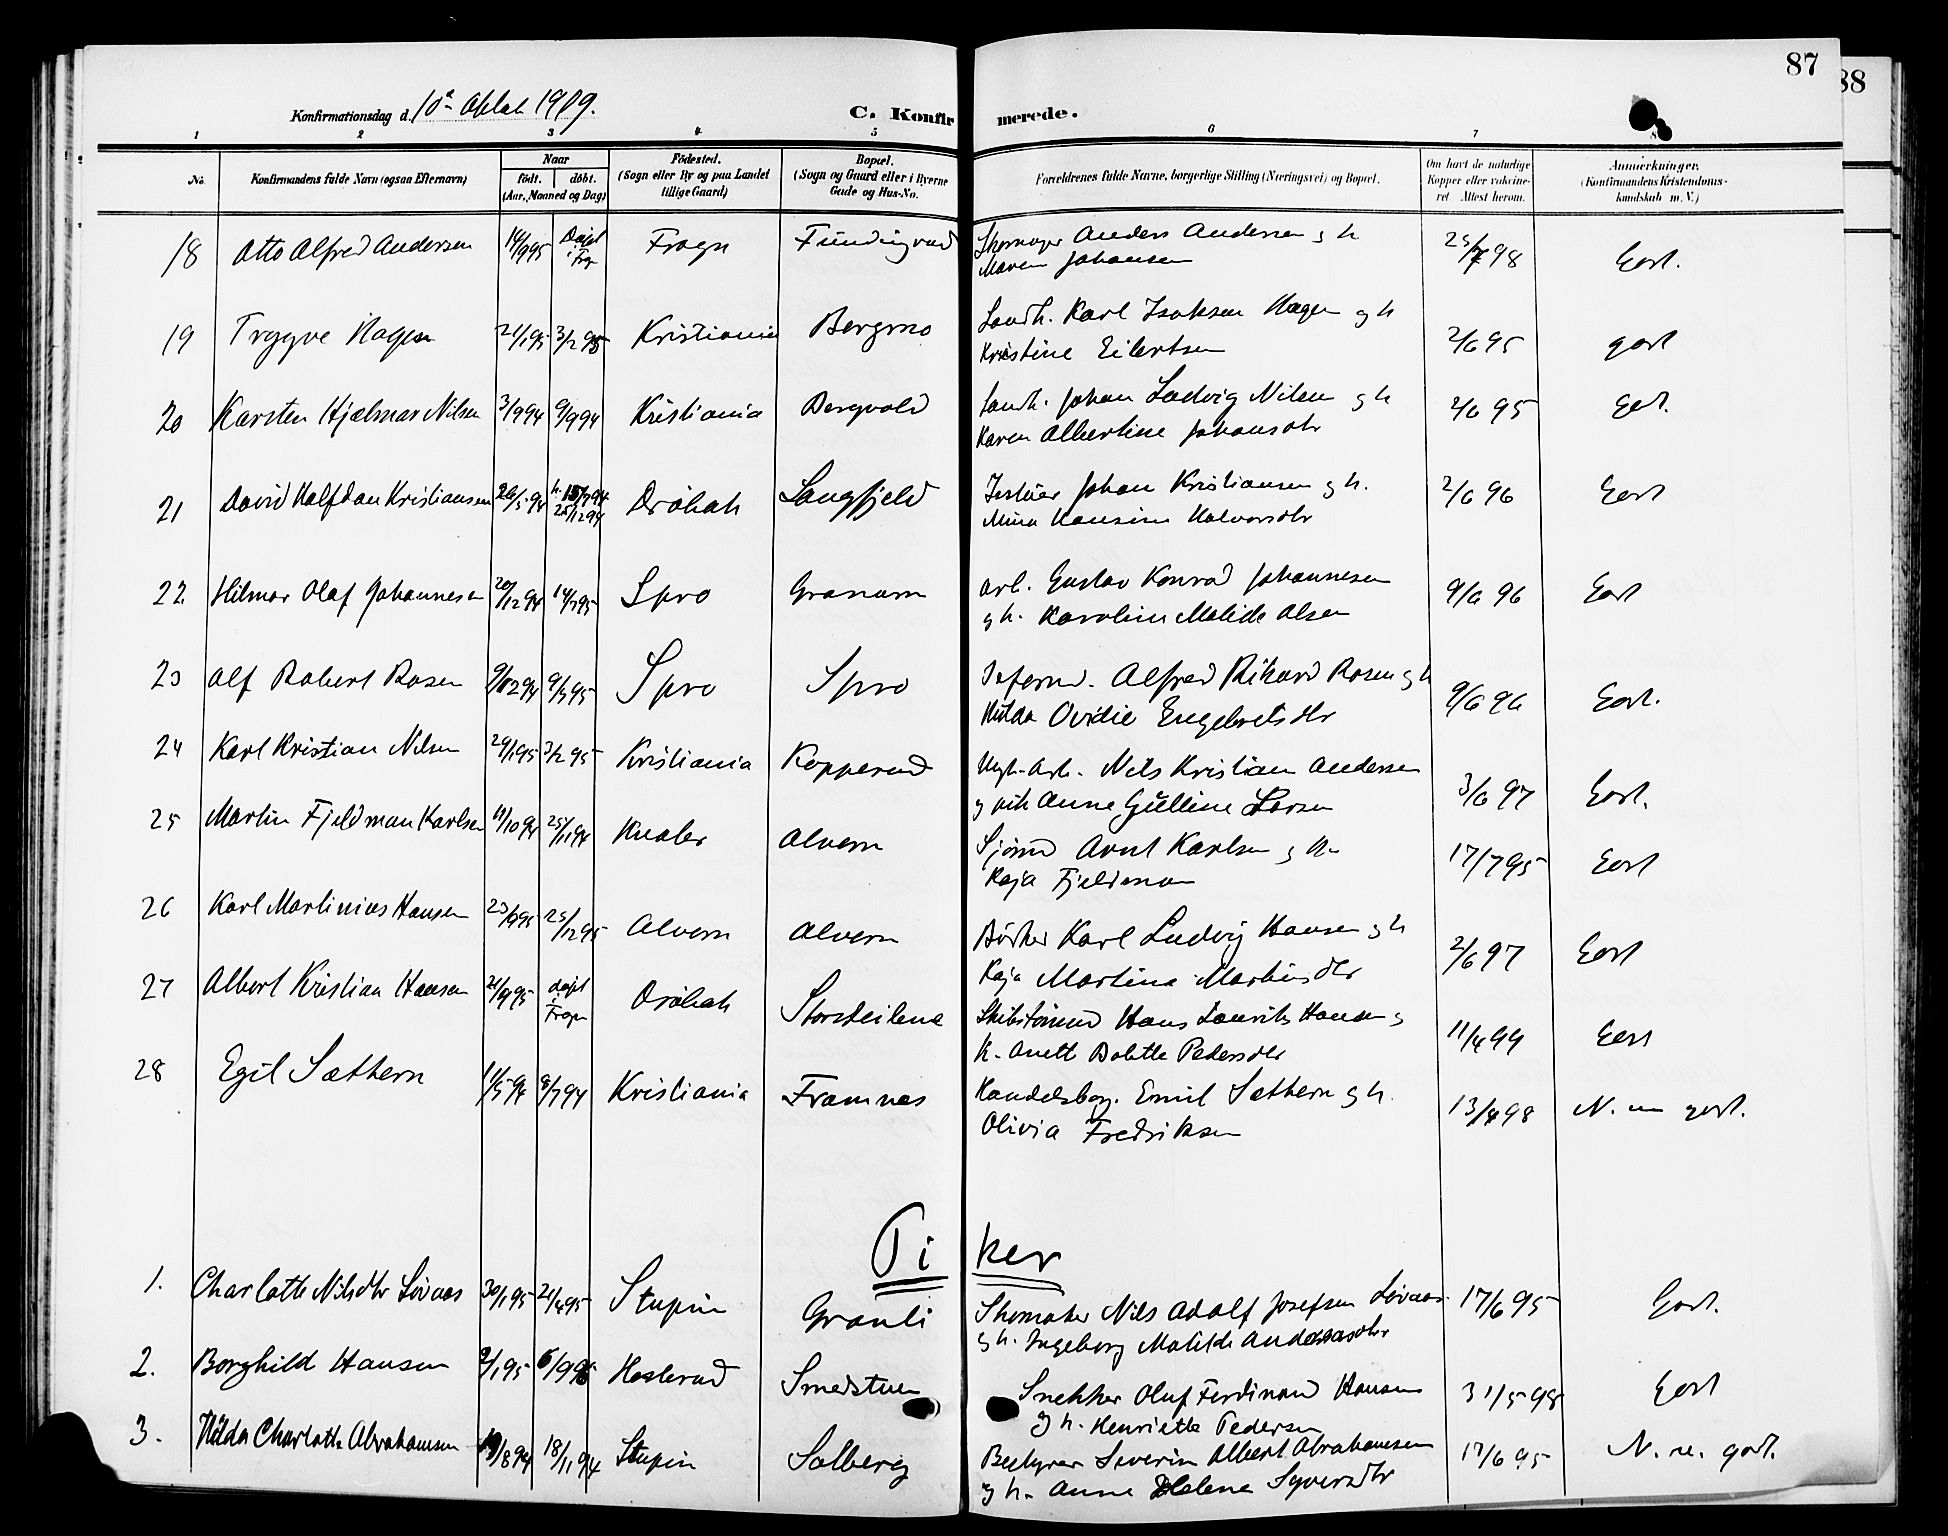 87
88
Konfirmationsdag d. 10de Oktob 1909.
C. Konfirmerede.
1 2 3 4 5 6 7 8
No. Konfirmandens fulde Navn (ogsaa Efternavn) Naar födt. döbt. (Aar, Maaned og Dag) Födested. (Sogn eller By og paa Landet tillige Gaard) Bopæl. (Sogn og Gaard eller i Byerne Gade og Hus-No. Forældrenes fulde Navne, borgerlige Stilling (Næringsvei) og Bopæl. Om havt de naturlige Kopper eller vakcineret Attest herom. Anmærkninger. (Konfirmandens Kristendomskundskab m. V.)
18 Otto Alfred Andersen 14/9 95 Døpt i Frogn Frogn Anders Andersen og h
Maren Johansen 98 Godt.
19 Trygve Hagen 21/1 95 3/2 95 Kristiania Bergmo Landh. Karl Isaksen Hagen og h
Kristine Eilertsen 2/6 95 godt
20 Karsten Hjalmar Nilsen 3/9 94 9/9 94 Kristiania Bergvold Landh. Johan Ludvig Nilsen og h
Karen Albertine Johansdtr 2/6 95 Godt.
21 David Halfdan Kristiansen 26/5 94 25/12 94 Dröbak Langfjeld Johan Kristiansen og h.
Mina Hansine Halvorsdtr 2/6 96 Godt
22 Hilmar Olaf Johannesen 20/12 94 14/7 95 Spro Granum Arb. Gustav Konrad Johannesen
og h. Karoline Matilde Olsen 9/6 96 Godt
23 Alf Robert Rosen 9/12 94 9/3 95 Spro Spro Alfred Rikard Rosen og h
Hilda Ovidie Engebretsdtr 9/6 96 Godt.
24 Karl Kristian Nilsen 29/1 95 3/2 95 Kristiania Kopperud Nils Kristian Andersen
og Anne Gulline Larsen 3/6 97 Godt.
25 Martin Fjeldman Karlsen 11/10 94 25/11 94 Knaler Alvern Sjömd Arnt Karlsen og h
Kaja Fjeldman 17/7 95 Godt
26 Karl Martinius Hansen 23/9 95 25/12 95 Alvern Alvern Bödker Karl Ludvig Hansen og h
Kaja Martina Martinsdtr 2/6 97 Godt
27 Albert Kristian Hansen 21/9 95 døpt i Frogn Dröbak Storsteilene Hans Laurits Hansen og
h. Anette Bolette Pedersdtr 11/4 99 Godt
28 Egil Sæthern 11/5 94 8/7 94 Kristiania Framnes Handelsbog. Emil Sæthern og h.
Olivia Fredriksen 13/4 98 N. m godt.
Piker
1. Charlotte Nilsdtr Lövaas 30/1 95 21/4 95 Stupin Granli Skomaker Nils Adolf Josefsen Lövaas
og h. Ingeborg Matilde Andersdtr 17/6 95 Godt.
2. Borghild Hansen 9/1 95 6/9 95 Heslerud Smedstuen Snekker Oluf Ferdinand Hansen
og h. Henriette Pedersen 31/5 98 Godt
3. Hilda Charlotte Abrahamsen 8 94 18/11 94 Stupin Solberg Bestyrer Severin Albert Abrahamsen
og h. Anne Helene Syversdtr 17/6 95 N. m. godt.